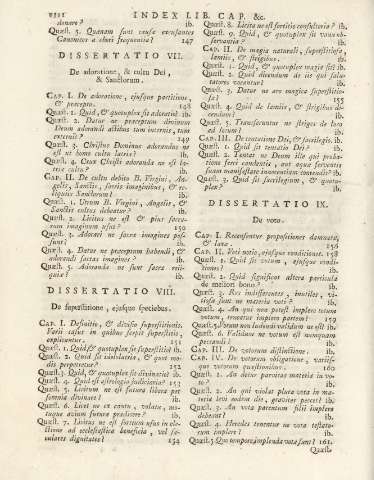 viii INDEX LIB. CAP. &c.
denero? ib.
Quæst. 5. Quænam sint causæ excusantes
Canonicos a chori frequentia? 147
DISSERTATIO VII.
De adoratione, & cultu Dei,
& Sanctorum.
CAP. I. De adoratione, ejusque partitione,
& præcepto. 148
Quæst. 1. Quid, & quotuplex sit adoratio? ib.
Quæst. 2. Datur ne præceptum divinum
Deum adorandi actibus tum internis, tum
externis? 149
Quæst. 3. Christus Dominus adorandus ne
est ut homo cultu latriæ? ib.
Quæst. 4. Crux Christi adoranda ne est latriæ
cultu? ib.
CAP. II. De cultu debito B. Virgini, Angelis,
Sanctis, sacris imaginibus, & reliquiis
Sanctorum? ib.
Quæst. 1. Utrum B. Virgini, Angelis, &
Sanctis cultus debeatur? ib.
Quæst. 2. Licitus ne est & pius sacrarum
imaginum usus? 150
Quæst. 3. Adorari ne sacræ imagines possunt?
ib.
Quæst. 4. Datur ne præceptum habendi, &
adorandi sacras imagines? ib.
Quæst. 5. Adorandæ ne sunt sacræ reliquiæ?
ib.
DISSERTATIO VIII.
De superstitione, ejusque speciebus.
CAP. I. Definitio, & divisio superstitionis.
Varii casus in quibus serpit superstitio,
explicantur. 151
Quæst. 1. Quid, & quotuplex sit superstitio? ib.
Quæst. 2. Quid sit idololatria, & quot modis
perpetretur? 152
Quæst. 3. Quid, & quotuplex sit divinatio? ib.
Quæst. 4. Quid est astrologia judiciaria? 153
Quæst. 5. Licitum ne est futura libera per
somnia divinare? ib.
Quæst. 6. Licet ne ex cantu, volatu, motuque
avium futura prædicere? ib.
Quæst. 7. Licitus ne est sortium usus in electione
ad ecclesiastica beneficia, vel sæculares
dignitates? 154
Quæst. 8. Licita ne est sortitio consultoria? ib.
Quæst. 9. Quid, & quotuplex sit vana observantia?
ib.
CAP. II. De magia naturali, superstitiosa,
lamiis, & strigibus. ib.
Quæst. 1. Quid, & quotuplex magia sit? ib.
Quæst. 2. Quid dicendum de iis qui salutatores
vocantur? ib.
Quæst. 3. Datur ne ars magica superstitiosa?
155
Quæst. 4. Quid de lamiis, & strigibus dicendum?
ib.
Quæst. 5. Transvectantur ne striges de loco
ad locum? ib.
CAP. III. De tentatione Dei, & sacrilegio. ib.
Quæst. 1. Quid sit tentatio Dei? ib.
Quæst. 2. Tentat ne Deum ille qui probationi
ferri candentis, aut aquæ ferventis
suam manifestare innocentiam contendit? ib.
Quæst. 3. Quid sit sacrilegium, & quotuplex?
ib.
DISSERTATIO IX.
De voto.
CAP. I. Recensentur propositiones damnatæ,
& laxæ. 156
CAP. II. Voti notio, ejusque conditiones. 158
Quæst. 1. Quid sit votum, ejusque conditiones?
ib.
Quæst. 2. Quid significet altera particula
de meliori bono? ib.
Quæst. 3. Res indifferentes, inutiles, vitiosæ
sunt ne materia voti? ib.
Quæst. 4. An qui non potest implere totum
votum, teneatur implere partem? 159
Quæst. 5. Votum non ludendi validum ne est? ib.
Quæst. 6. Validum ne votum est nunquam
peccandi? ib.
CAP. III. De votorum distinctione. ib.
CAP. IV. De votorum obligatione, variisque
votorum quæstionibus. 160
Quæst. 1. An detur parvitas materiæ in voto?
ib.
Quæst. 2. An qui violat plura vota in materia
levi eodem die, graviter peccet? ib.
Quæst. 3. An vota parentum filii implere
debeant? ib.
Quæst. 4. Hæredes tenentur ne vota testatorum
implere? ib.
Quæst. 5. Quo tempore implenda vota sunt? 161.
Quæst.